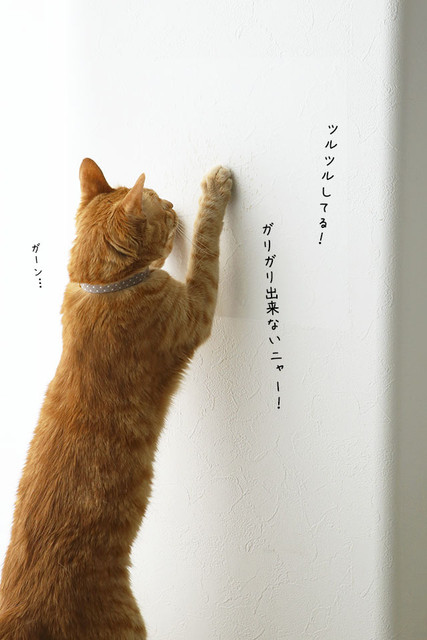 ツルツルしてる!
ガリガリ出来ないニャー!
ガーン…